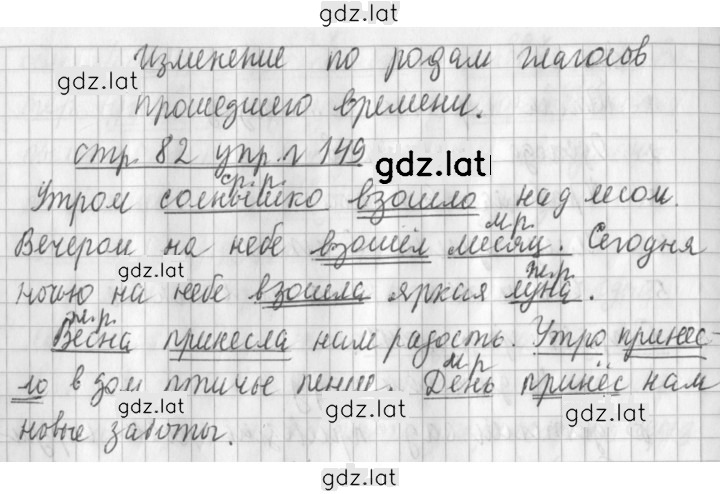 gdz.lat
Изменение по родам глаголов
gdz.lat
прошедшего времени.
стр. 82 упр. № 149
gdz.lat
ср.р.
Утром солнышко взошло над лесом.
м.р.
Вечером на небе взошёл месяц. Сегодня
gdz.lat
ж.р.
ночью на небе взошла яркая луна.
ж.р.
gdz.lat
Весна принесла нам радость. Утро принес-
gdz.lat
м.р
ло в дом птичье пение. День принёс нам
gdz.lat
gdz.lat
новые заботы.
gdz.lat